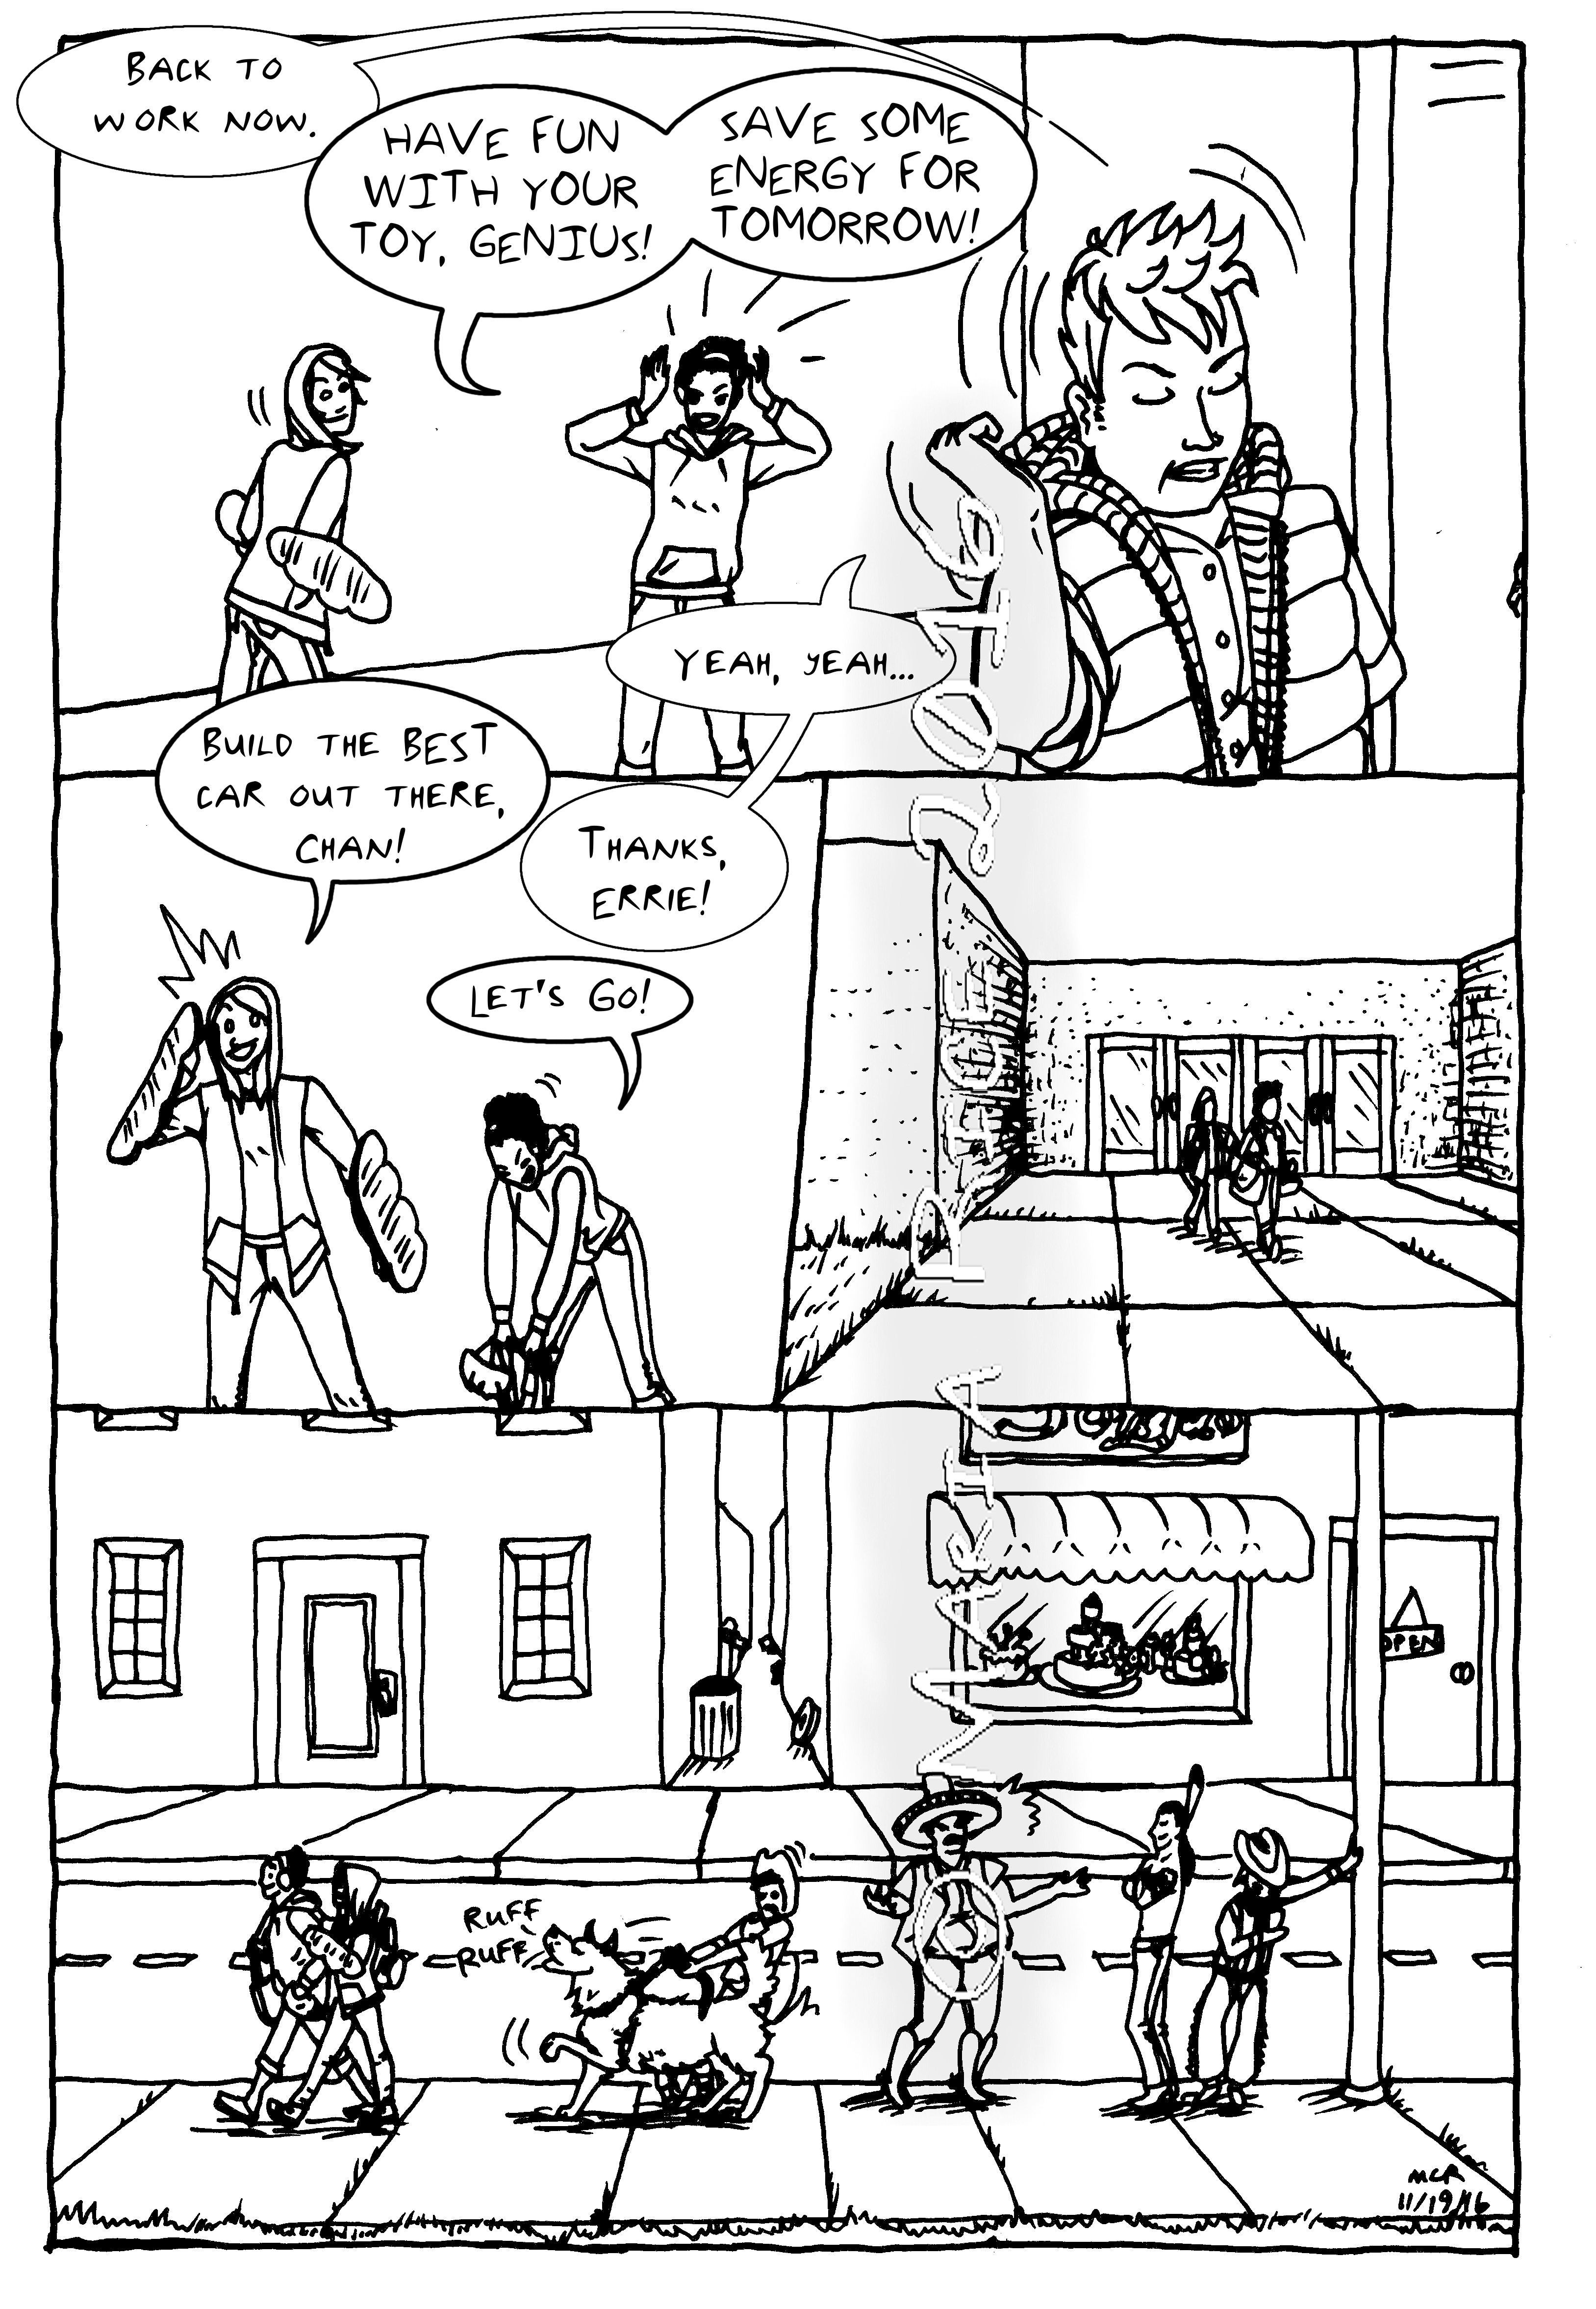 BACK TO
WORK NOW.
HAVE FUN
WITH YOUR
TOY, GENIUS!
SAVE SOME
ENERGY FOR
TOMORROW!
YEAH, YEAH...
BUILD THE BEST
CAR OUT THERE,
CHAN!
THANKS,
ERRIE!
LET'S GO!
OPEN
RUFF
RUFF
MCR
11/19/16
© MARTA RICE 2016